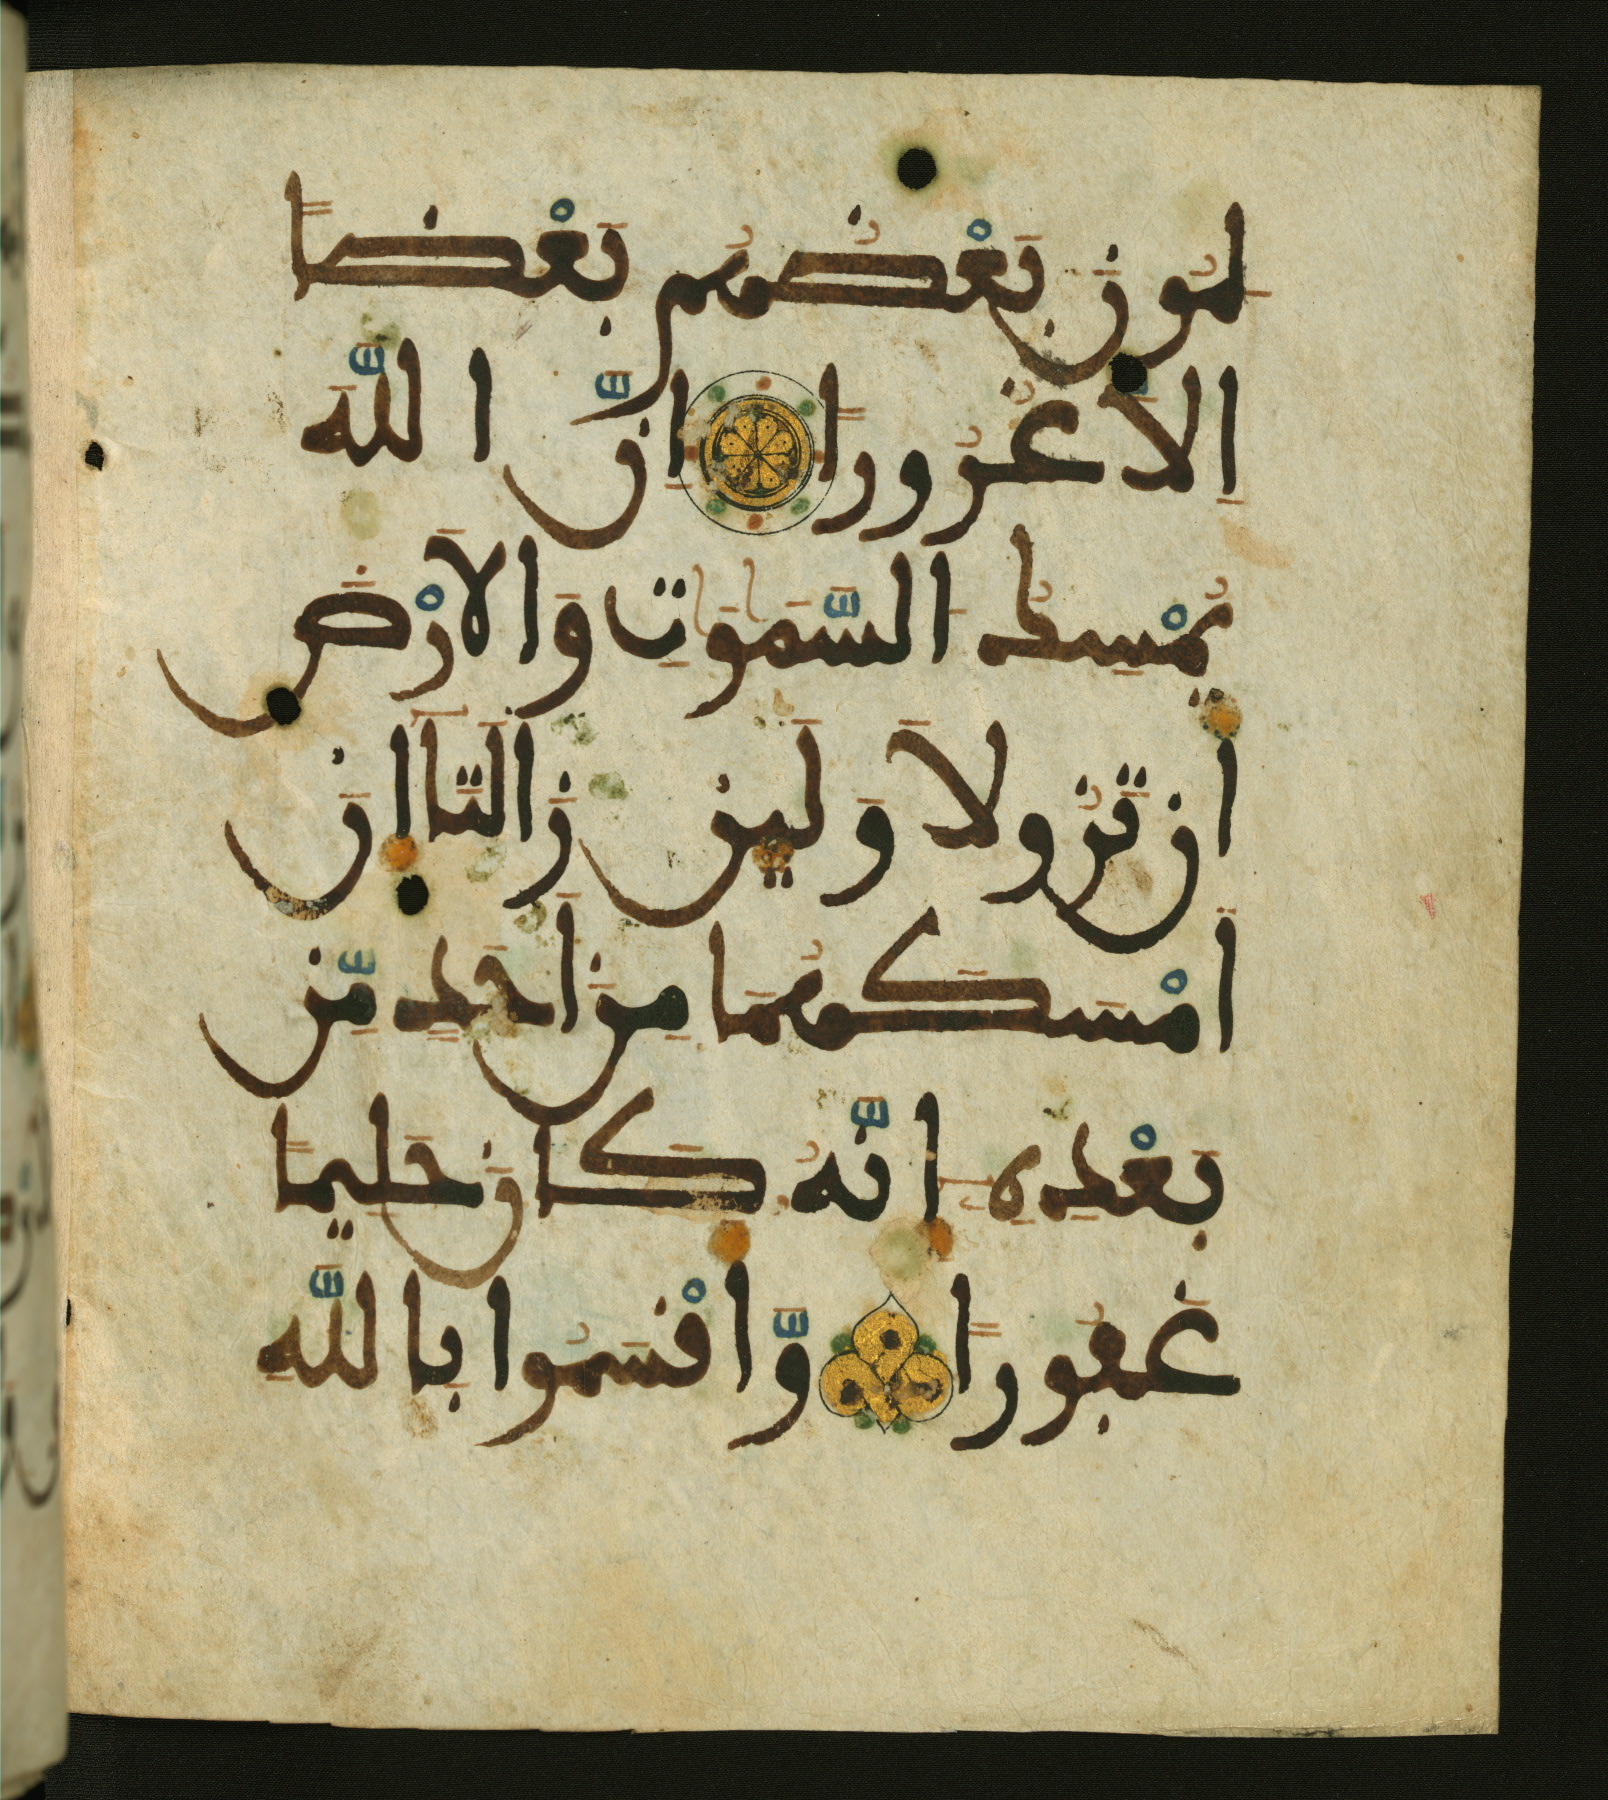 لِمُونَ بَعْضُهُم بَعْضًا
اِلَّا غُرُورًا اِنَّ اَ۬للَّهَ
يُمْسِكُ اُ۬لسَّمَٰوَٰتِ وَالَارْضَ
أَن تَزُولَا وَلَئِن زَالَتَآ أَنَ
اَمْسَكَهُمَا مِنَ اَحَدٍ مِّن
بَعْدِهِۦٓ إِنَّهُۥ كَانَ حَلِيمًا
غَفُورًا وَّأَقْسَمُوا بِاللَّهِ